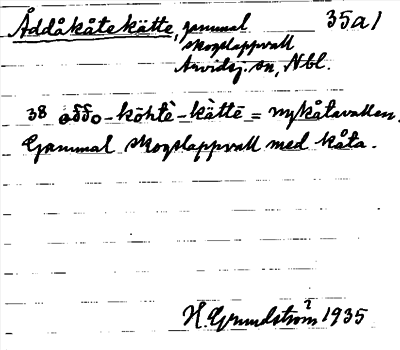 Åddåkåtekätte, gammal 35a1
skogslappvall
Arvidsj. sn, Nbl.
38 oδδo-kōhtē-kättē = nykåtavallen.
Gammal skogslappvall med kåta.
H. Grundström 1935